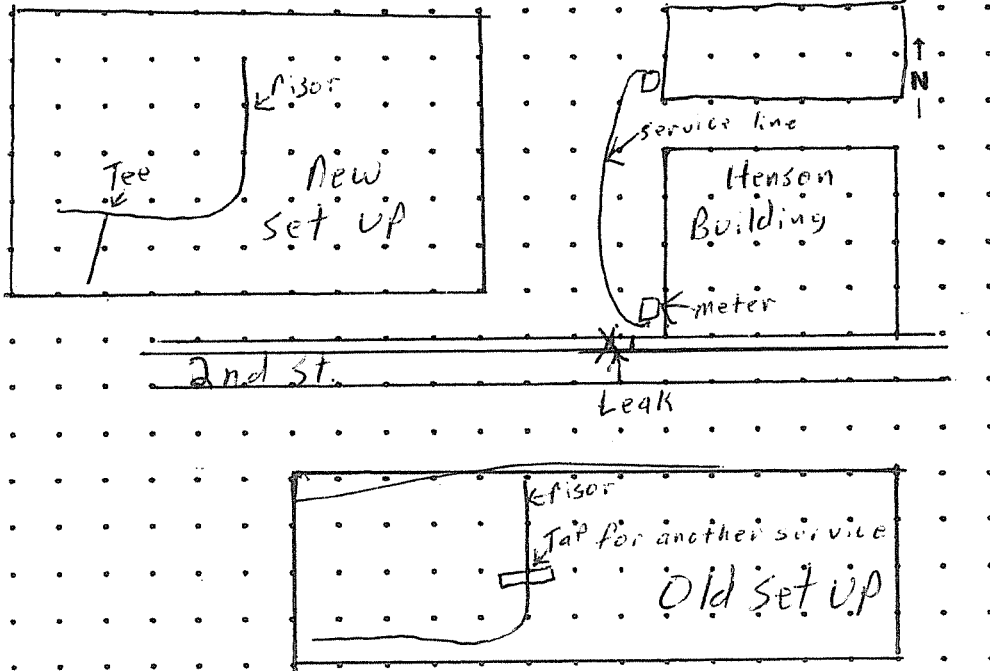 Risor
Tee
New
set up
N
service line
Henson
Building
meter
2nd St.
Leak
Risor
Tap for another service
Old set up